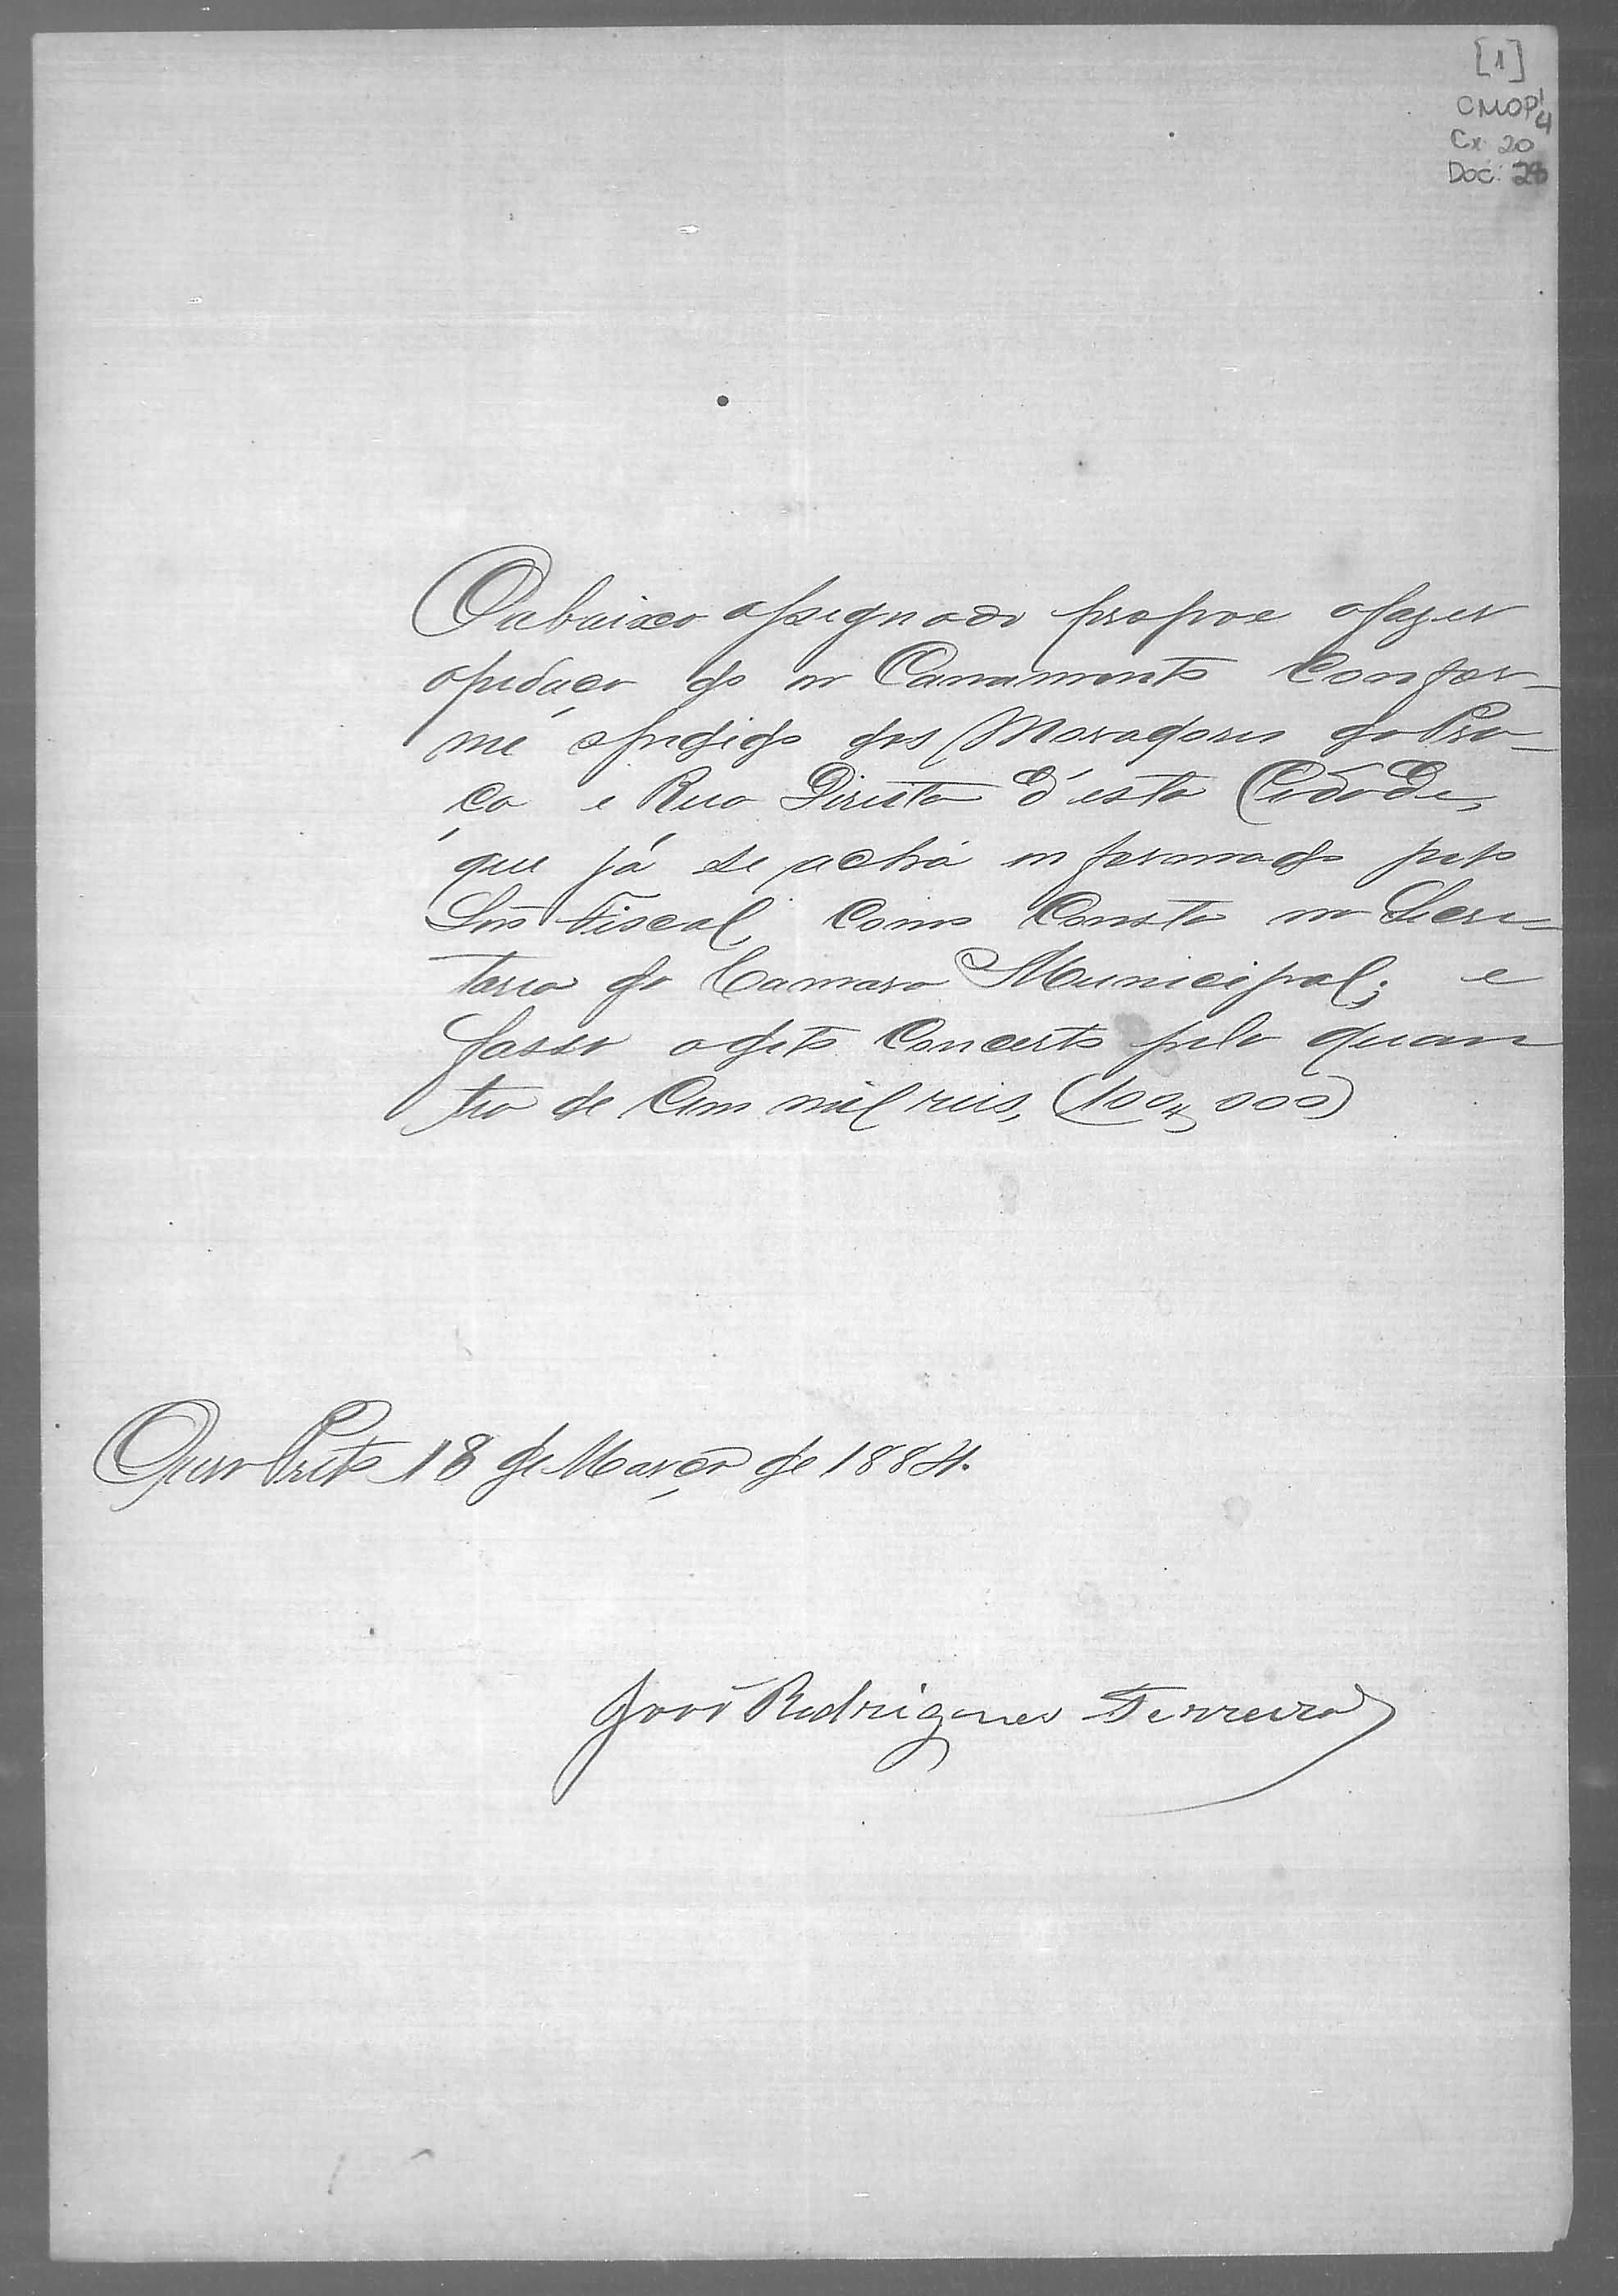 [1]
CMOP 1/4
Cx. 20
Doc: 28
O abaixo assignado propoe afazer
opedaço do Canamento Confor-
me opedido dos Moradores da Pra-
ça e Rua Direita d'esta Cidade,
que já se acha informado pelo
Snr Fiscal, Como Consta na Secre-
taria da Camara Municipal; e
fasso o dito Concerto pela quan
tia de Cem mil reis, (100$000)
Ouro Preto 18 de Março de 1884.
José Rodrigues Ferreira